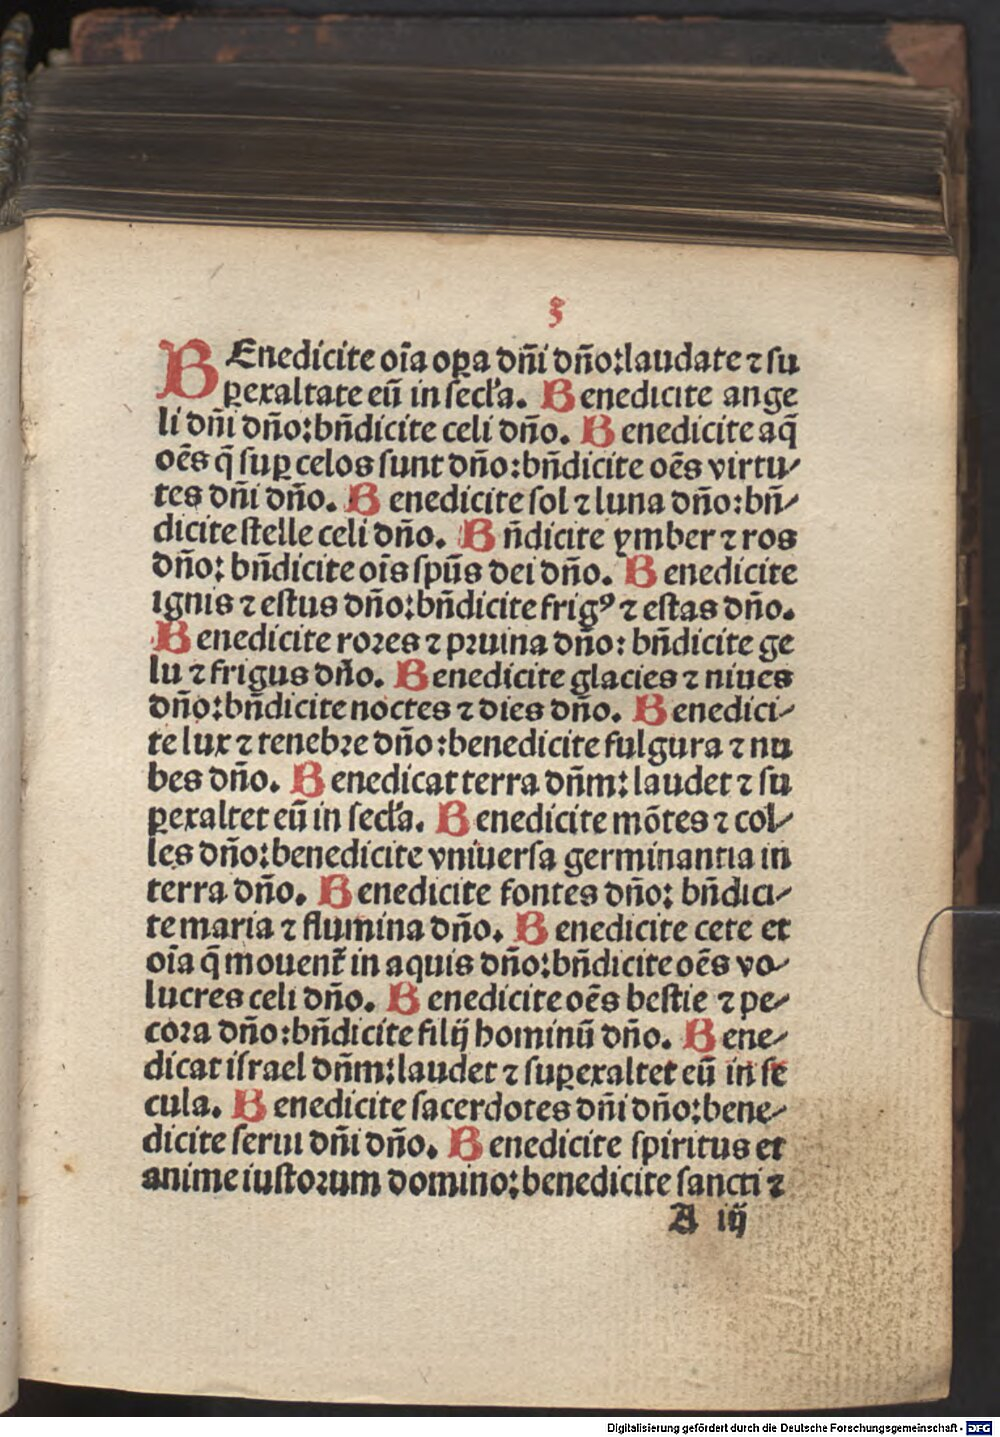 3
BEnedicite oīa oꝑa dn̄i dn̄o:laudate ⁊ su
ꝑexaltate eū in secl'a. Benedicite ange
li dn̄i dn̄o:bn̄dicite celi dn̄o. Benedicite aq̄
oēs q̄ suꝑ celos sunt dn̄o:bn̄dicite oēs virtu⸗
tes dn̄i dn̄o. Benedicite sol ⁊ luna dn̄o:bn̄⸗
dicite stelle celi dn̄o. Bn̄dicite ymber ⁊ ros
dn̄o: bn̄dicite oīs spūs dei dn̄o. Benedicite
ignis ⁊ estus dn̄o:bn̄dicite frigꝰ ⁊ estas dn̄o.
Benedicite rores ⁊ pruina dn̄o: bn̄dicite ge
lu ⁊ frigus dn̄o. Benedicite glacies ⁊ niues
dn̄o:bn̄dicite noctes ⁊ dies dn̄o. Benedici⸗
te lux ⁊ tenebre dn̄o:benedicite fulgura ⁊ nu
bes dn̄o. Benedicat terra dn̄m: laudet ⁊ su
ꝑexaltet eū in secl'a. Benedicite mōtes ⁊ col⸗
les dn̄o:benedicite vniuersa germinantia in
terra dn̄o. Benedicite fontes dn̄o: bn̄dici⸗
te maria ⁊ flumina dn̄o. Benedicite cete et
oīa q̄ mouent̄ in aquis dn̄o:bn̄dicite oēs vo⸗
lucres celi dn̄o. Benedicite oēs bestie ⁊ pe⸗
cora dn̄o:bn̄dicite filij hominū dn̄o. Bene⸗
dicat israel dn̄m:laudet ⁊ suꝑexaltet eū in se
cula. Benedicite sacerdotes dn̄i dn̄o:bene⸗
dicite serui dn̄i dn̄o. Benedicite spiritus et
anime iustorum domino:benedicite sancti ⁊
A iij
Digitalisierung gefördert durch die Deutsche Forschungsgemeinschaft - DFG